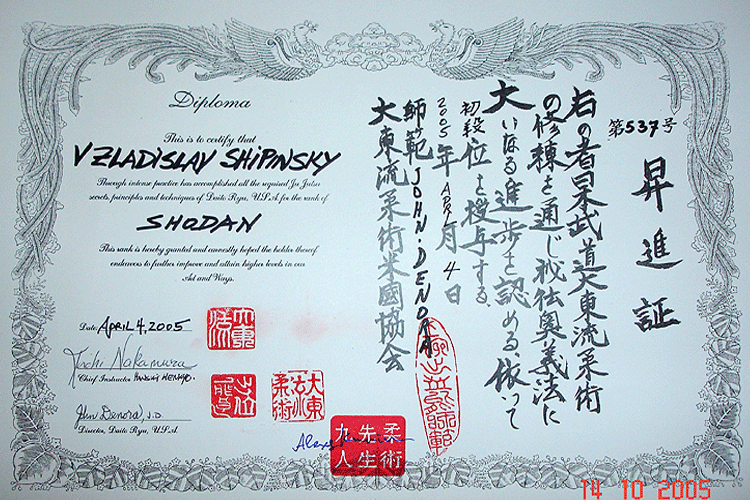 Diploma
This is to certify that
VZLADISLAV SHIPINSKY
Through intense practice has accomplished all the required Ju Jutsu
secrets, principles and techniques of Daito Ryu, U.S.A. for the rank of
SHODAN
This rank is hereby granted and earnestly hoped the holder thereof
endeavors to further improve and attain higher levels in our
Art and Ways.
Date: APRIL 4, 2005
Yochi Nakamura
Chief Instructor HANSHI
John Denora, J.D.
Director, Daito Ryu, U.S.A.
第537号
昇進証
右の者日本武道大東流柔術
の修練を通じ秘伝奥義法に
大いなる進歩を認める、依って
初段位を授与する
2005年APRIL月4日
師範 JOHN・DENORA
大東流柔術米國協会
大東
柔術
柔術
先生
九人
14 10 2005